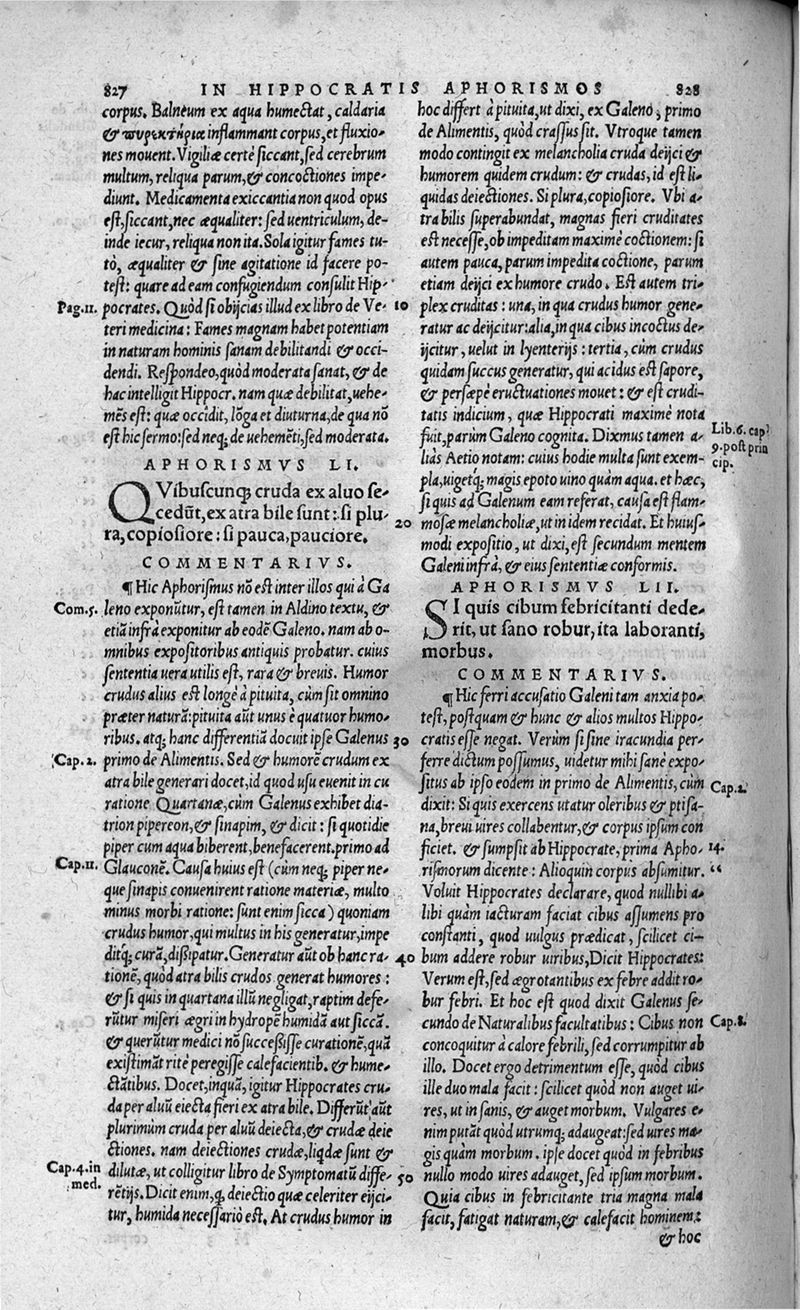 827 IN HIPPOCRATIS APHORISMOS 828
corpus. Balneum ex aqua humectat, caldaria
& πυρεκτήρια inflammant corpus, et fluxio-
nes mouent. Vigiliæ certè siccant, sed cerebrum
multum, reliqua parum, & concoctiones impe-
diunt. Medicamenta exiccantia non quod opus
est, siccant, nec æqualiter: sed uentriculum, de-
inde iecur, reliqua non ita. Sola igitur fames tu-
tò, æqualiter & sine agitatione id facere po-
test: quare ad eam confugiendum consulit Hip-
Pag.11. pocrates. Quòd si obijcias illud ex libro de Ve- 10
teri medicina: Fames magnam habet potentiam
in naturam hominis sanam debilitandi & occi-
dendi. Respondeo, quòd moderata sanat, & de
hac intelligit Hippocr. nam quæ debilitat, uehe-
mẽs est: quæ occidit, lõga et diuturna, de qua nõ
est hic sermo: sed neq; de uehemẽti, sed moderata.
APHORISMVS LI.
QVibuscunq; cruda ex aluo se-
cedũt, ex atra bile sunt: si plu- 20
ra, copiosiore: si pauca, pauciore.
COMMENTARIVS.
¶ Hic Aphorismus nõ est inter illos qui à Ga
Com.5. leno exponũtur, est tamen in Aldino textu, &
etiã infrà exponitur ab eodẽ Galeno. nam ab o-
mnibus expositoribus antiquis probatur. cuius
sententia uera utilis est, rara & breuis. Humor
crudus alius est longè à pituita, cùm sit omnino
præter naturã: pituita aũt unus è quatuor humo-
ribus. atq; hanc differentiã docuit ipse Galenus 30
Cap.2. primo de Alimentis. Sed & humorẽ crudum ex
atra bile generari docet, id quod usu euenit in cu
ratione Quartanæ, cùm Galenus exhibet dia-
trion pipereon, & sinapim, & dicit: si quotidie
piper cum aqua biberent, benefacerent. primo ad
Cap.11. Glauconẽ. Causa huius est (cùm neq; piper ne-
que sinapis conuenirent ratione materiæ, multo
minus morbi ratione: sunt enim sicca) quoniam
crudus humor, qui multus in his generatur, impe
ditq; curã, dissipatur. Generatur aũt ob hanc ra- 40
tionẽ, quòd atra bilis crudos generat humores:
& si quis in quartana illũ negligat, raptim defe-
rũtur miseri ægri in hydropẽ humidã aut siccã.
& querũtur medici nõ successisse curationẽ, quã
existimãt ritè peregisse calefacientib. & hume-
ctãtibus. Docet, inquã, igitur Hippocrates cru-
da per aluũ eiecta fieri ex atra bile. Differũt aũt
plurimùm cruda per aluũ deiecta, & crudæ deie
ctiones. nam deiectiones crudæ, liqdæ sunt &
Cap.4.in med. dilutæ, ut colligitur libro de Symptomatũ diffe- 50
rẽtijs. Dicit enim, q, deiectio quæ celeriter eijci-
tur, humida necessariò est. At crudus humor in
hoc differt à pituita, ut dixi, ex Galeno, primo
de Alimentis, quòd crassus sit. Vtroque tamen
modo contingit ex melancholia cruda deijci &
humorem quidem crudum: & crudas, id est li-
quidas deiectiones. Si plura, copiosiore. Vbi a-
tra bilis superabundat, magnas fieri cruditates
est necesse, ob impeditam maximè coctionem: si
autem pauca, parum impedita coctione, parum
etiam deijci ex humore crudo. Est autem tri-
plex cruditas: una, in qua crudus humor gene-
ratur ac deijcitur: alia, in qua cibus incoctus de-
ijcitur, uelut in lyenterijs: tertia, cùm crudus
quidam succus generatur, qui acidus est sapore,
& persæpè eructuationes mouet: & est crudi-
tatis indicium, quæ Hippocrati maximè nota
fuit, parùm Galeno cognita. Diximus tamen a- Lib.6.cap?
liàs Aetio notam: cuius hodie multa sunt exem- 9.post prin
cip.
pla, uigetq; magis epoto uino quàm aqua. et hæc,
si quis ad Galenum eam referat, causa est flam-
mosæ melancholiæ, ut in idem recidat. Et huius-
modi expositio, ut dixi, est secundum mentem
Galeni infrà, & eius sententiæ conformis.
APHORISMVS LII.
SI quis cibum febricitanti dede-
rit, ut sano robur, ita laboranti,
morbus.
COMMENTARIVS.
¶ Hic ferri accusatio Galeni tam anxia po-
test, postquam & hunc & alios multos Hippo-
cratis esse negat. Verùm si sine iracundia per-
ferre dictum possumus, uidetur mihi sanè expo-
situs ab ipso eodem in primo de Alimentis, cùm Cap.2.
dixit: Si quis exercens utatur oleribus & ptisa-
na, breui uires collabentur, & corpus ipsum con
ficiet. & sumpsit ab Hippocrate, prima Apho- 14.
rismorum dicente: Alioquin corpus absumitur. “
Voluit Hippocrates declarare, quod nullibi a-
libi quàm iacturam faciat cibus assumens pro
constanti, quod uulgus prædicat, scilicet ci-
bum addere robur uiribus, Dicit Hippocrates:
Verum est, sed ægrotantibus ex febre addit ro-
bur febri. Et hoc est quod dixit Galenus se-
cundo de Naturalibus facultatibus: Cibus non Cap.8.
concoquitur à calore febrili, sed corrumpitur ab
illo. Docet ergo detrimentum esse, quòd cibus
ille duo mala facit: scilicet quòd non auget ui-
res, ut in sanis, & auget morbum. Vulgares e-
nim putãt quòd utrumq; adaugeat: sed uires ma-
gis quàm morbum. ipse docet quòd in febribus
nullo modo uires adauget, sed ipsum morbum.
Quia cibus in febricitante tria magna mala
facit, fatigat naturam, & calefacit hominem:
& hoc